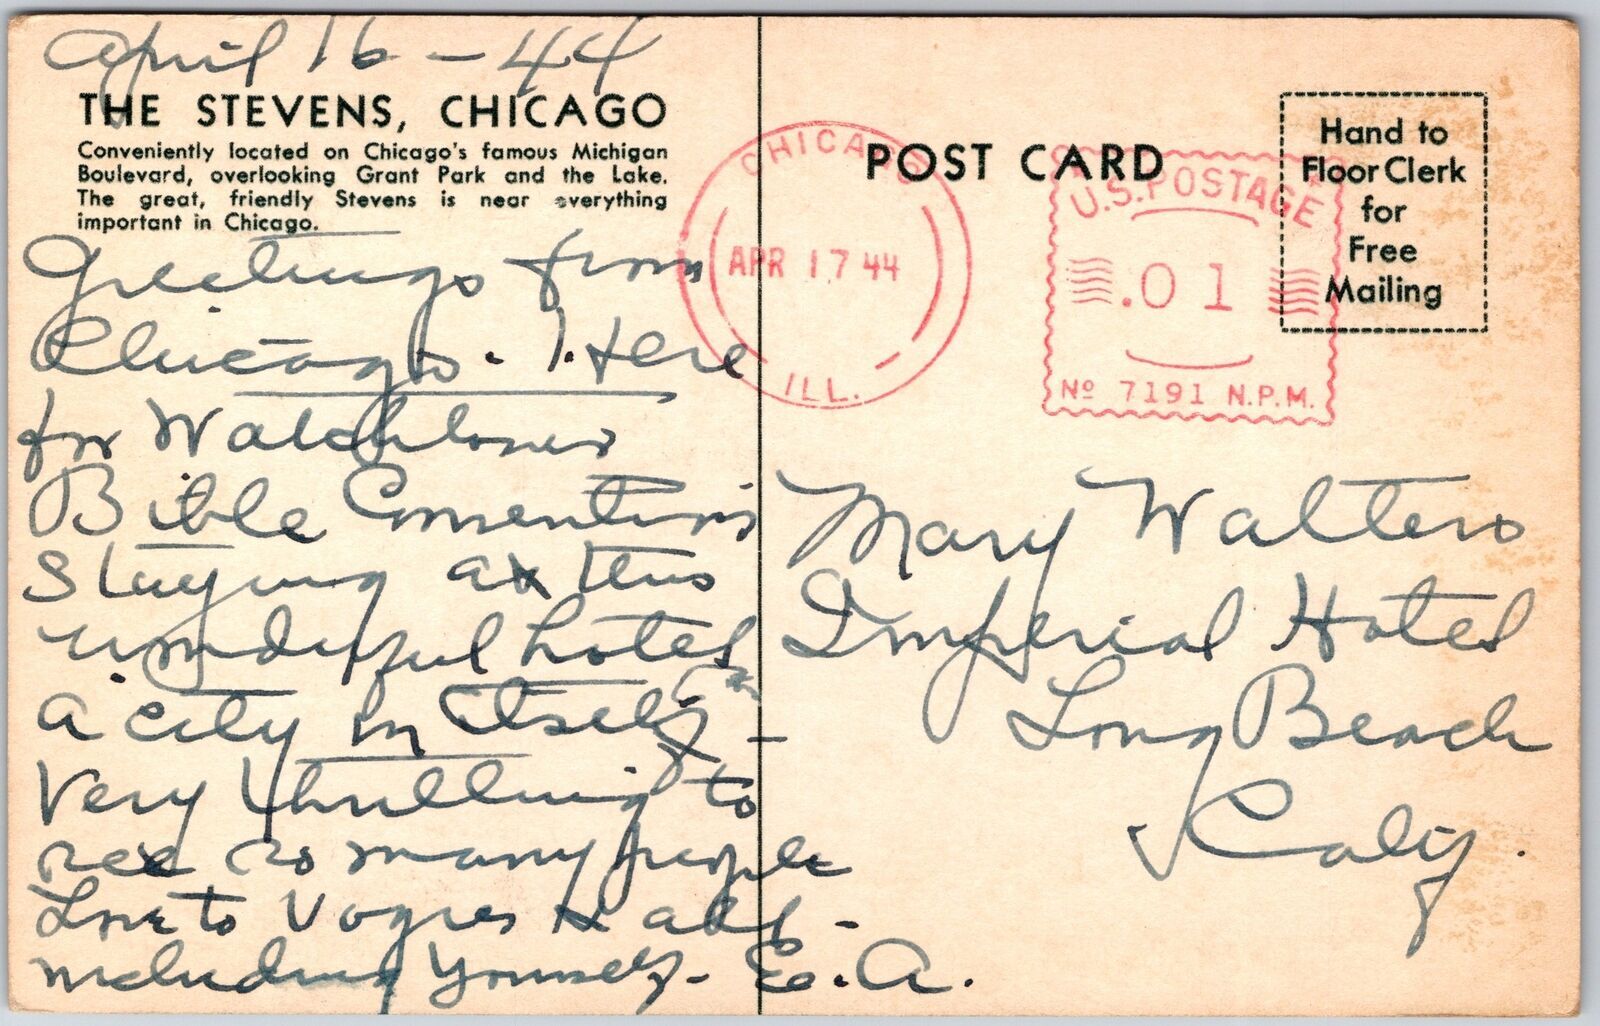 April 16 - 44
THE STEVENS, CHICAGO
Conveniently located on Chicago's famous Michigan
Boulevard, overlooking Grant Park and the Lake.
The great, friendly Stevens is near everything
important in Chicago.
Greetings from
Chicago. Here
for
Bible Conventions
Staying at this
wonderful hotel
a city in itself -
Very thrilling to
see so many people
Love to & all -
including yourself - E. A.
POST CARD
CHICAGO
APR 17 44
ILL.
U.S. POSTAGE
.01
No 7191 N.P.M.
Hand to
Floor Clerk
for
Free
Mailing
Mary Walters
Imperial Hotel
Long Beach
Calif.